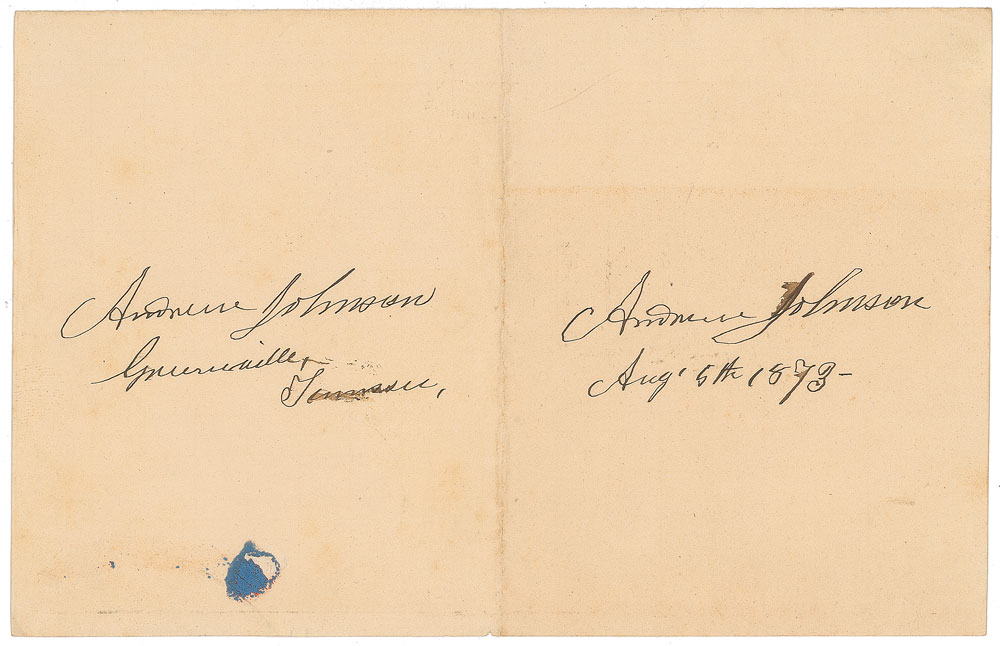 Andrew Johnson
Greeneville,
Tennessee,
Andrew Johnson
Aug' 5th 1873-